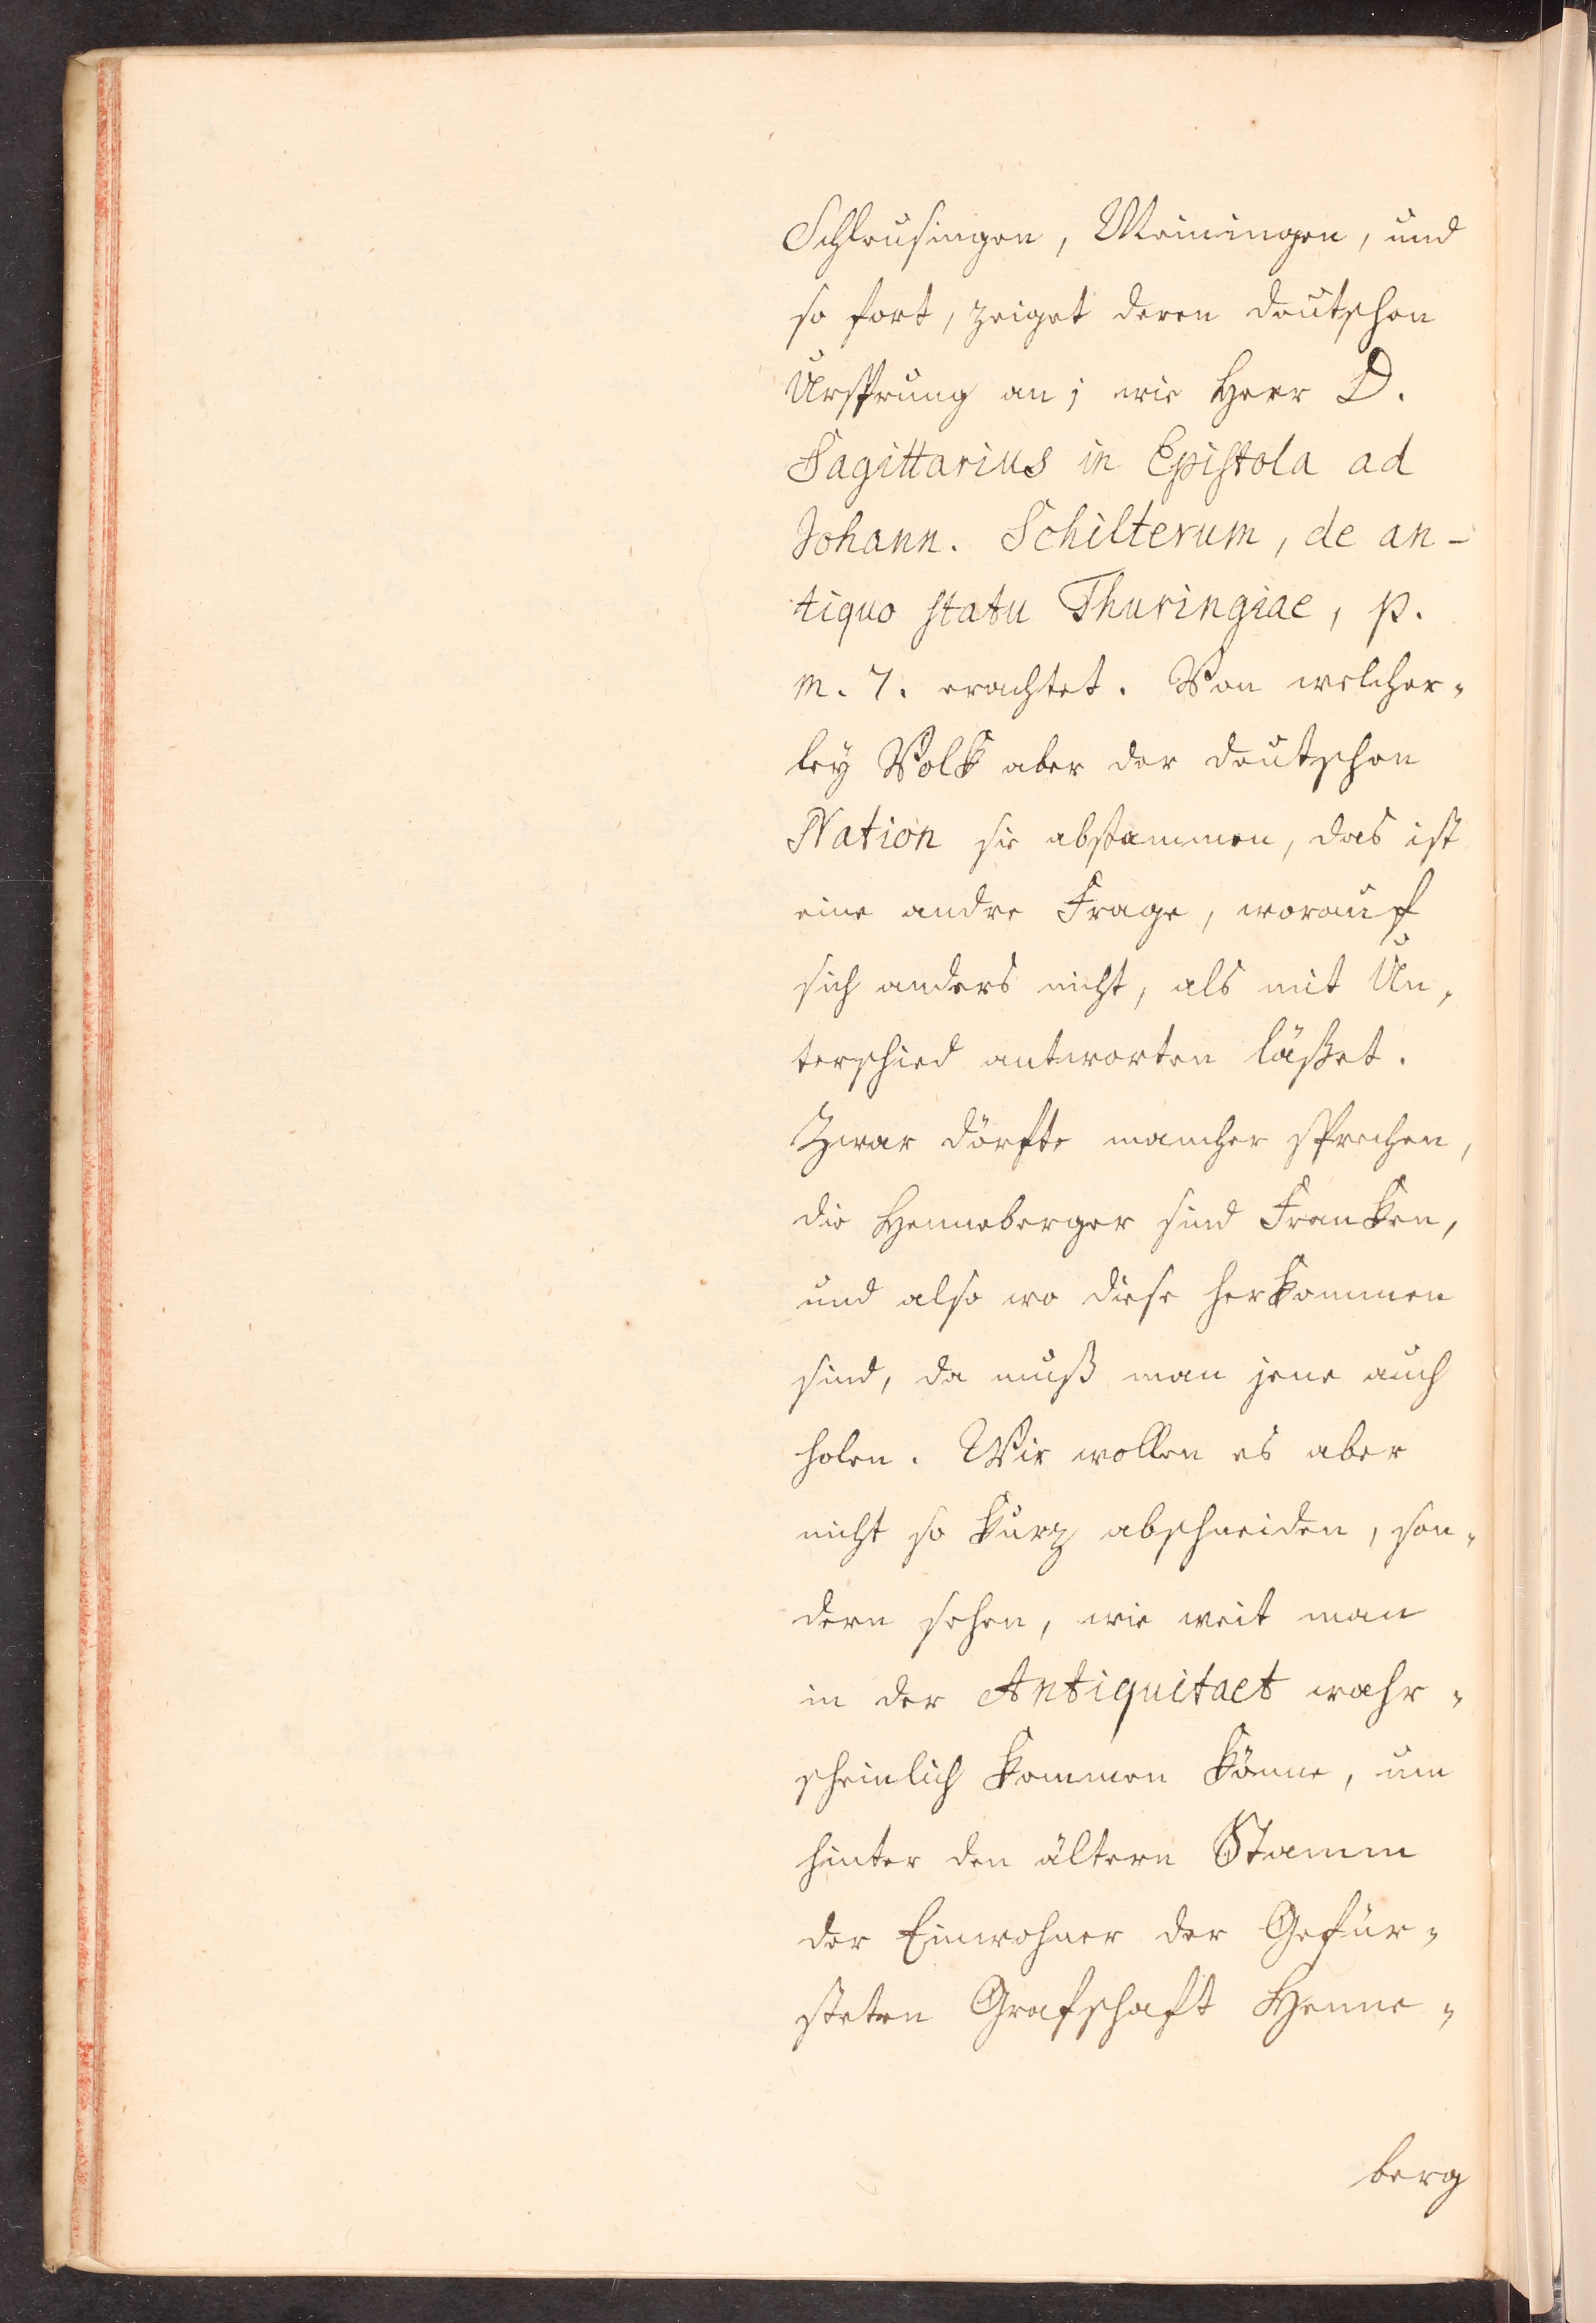 Schleusingen, Meiningen, und
so fort, zeiget deren deutschen
Ursprung an; wie Herr D.
Sagittarius in Epistola ad
Johann. Schilterum, de an-
tiquo statu Thuringiae, p.
m. 7. erachtet. Von welcher-
ley Volk aber der deutschen
Nation sie abstammen, das ist
eine andre Frage, worauf
sich anders nicht, als mit Un-
terschied antworten läßet.
Zwar dörfte mancher sprechen,
die Henneberger sind Franken,
und also wo diese herkommen
sind, da muß man jene auch
holen. Wir wollen es aber
nicht so kurz abschneiden, son-
dern sehen, wie weit man
in der Antiquitaet wahr-
scheinlich kommen könne, um
hinter den ältern Stamm
der Einwohner der Gefür-
steten Grafschaft Henne-
berg